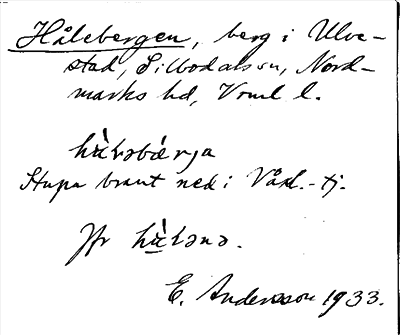 Hålebergen, berg i Ulve-
stad, Silbodals sn, Nord-
marks hd, Vrml l.
hὰləbǽrja
Stupa brant ned i Växl.-tj.
Jfr hὰlənə.
E. Andersson 1933.